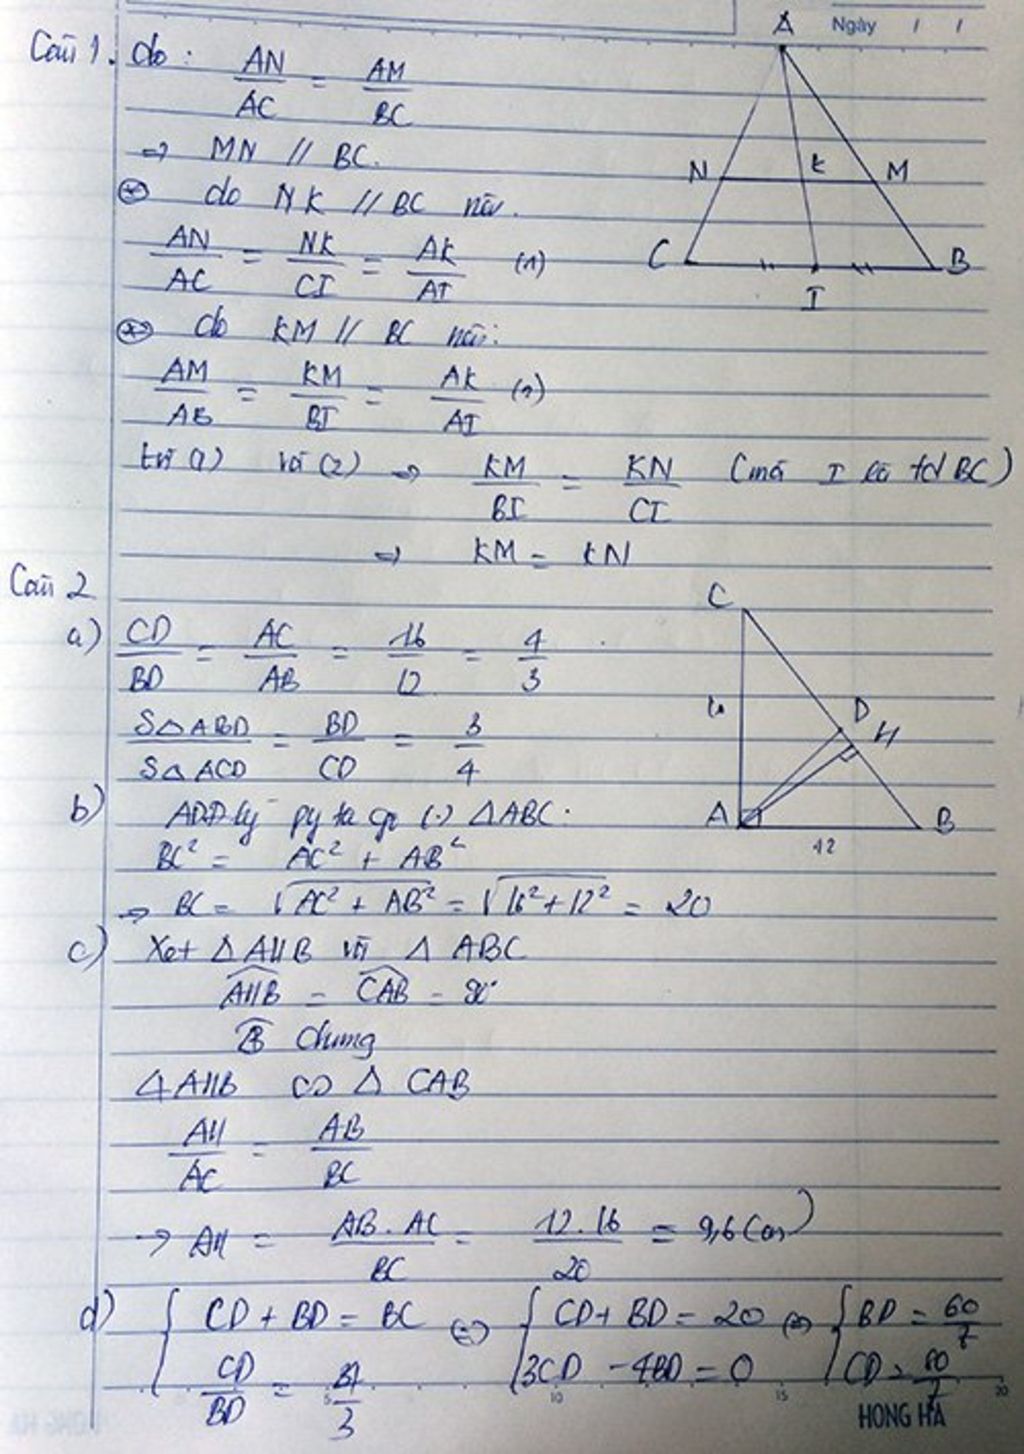 Ngày / /
A
Câu 1. do: AN/AC = AM/BC
=> MN // BC.
N K M
* do NK // BC nên.
AN/AC = NK/CI = AK/AI (1)
C I B
* do KM // BC nên:
AM/AB = KM/BI = AK/AI (2)
từ (1) và (2) => KM/BI = KN/CI (mà I là tđ BC)
=> KM = KN
Câu 2
C
a) CD/BD = AC/AB = 16/12 = 4/3
D H
SΔABD/SΔACD = BD/CD = 3/4
A B
12
b) ADĐlý pytago (.) ΔABC.
BC² = AC² + AB²
=> BC = √(AC² + AB²) = √(16² + 12²) = 20
c) Xét ΔAHB và Δ ABC
AHB = CAB = 90°
B chung
ΔAHB ∽ Δ CAB
AH/AC = AB/BC
-> AH = AB.AC/BC = 12.16/20 = 9,6 (cm)
d) { CD + BD = BC (=) { CD + BD = 20 (=) { BD = 60/7
CD/BD = 4/3 3CD - 4BD = 0 CD = 80/7
5 10 15 20
HONG HA